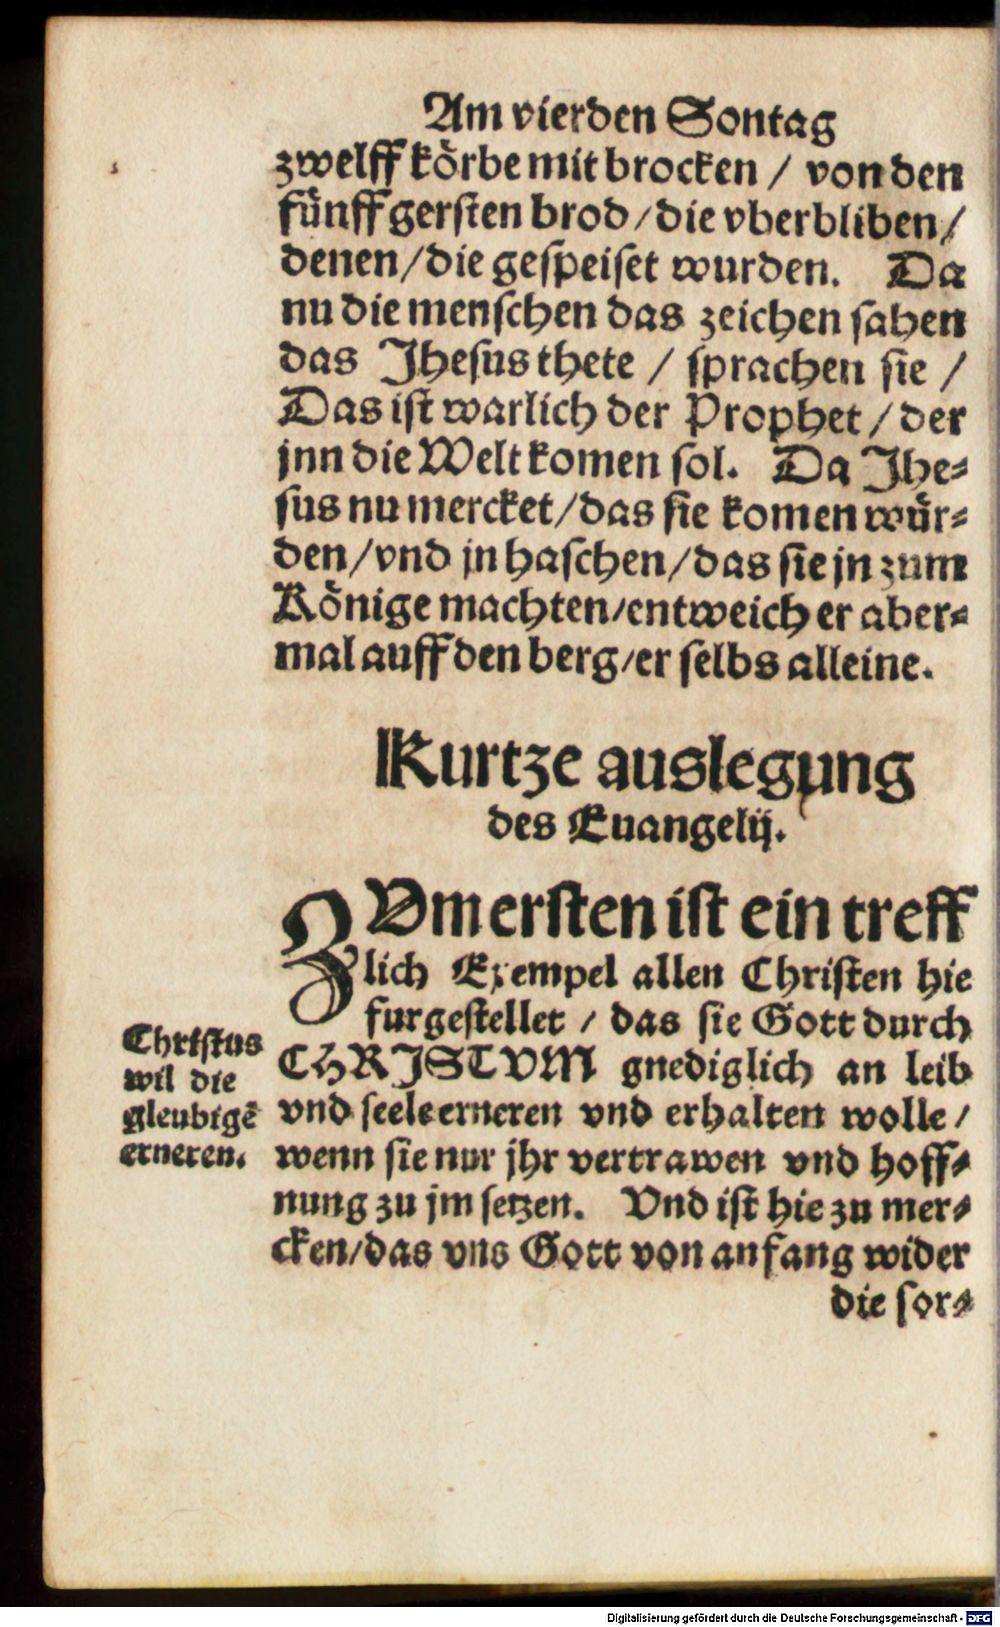 Am vierden Sontag
zwelff körbe mit brocken / von den
fünff gersten brod / die vberbliben /
denen / die gespeiset wurden. Da
nu die menschen das zeichen sahen
das Jhesus thete / sprachen sie /
Das ist warlich der Prophet / der
jnn die Welt komen sol. Da Jhe⸗
sus nu mercket / das sie komen wür⸗
den / vnd jn haschen / das sie jn zum
Könige machten / entweich er aber⸗
mal auff den berg / er selbs alleine.
Kurtze auslegung
des Euangelij.
ZVm ersten ist ein treff
lich Exempel allen Christen hie
furgestellet / das sie Gott durch
CHRJSTVM gnediglich an leib
vnd seele erneren vnd erhalten wolle /
wenn sie nur jhr vertrawen vnd hoff⸗
nung zu jm setzen. Vnd ist hie zu mer⸗
cken / das vns Gott von anfang wider
die sor⸗
Christus
wil die
gleubigē
erneren.
Digitalisierung gefördert durch die Deutsche Forschungsgemeinschaft - DFG